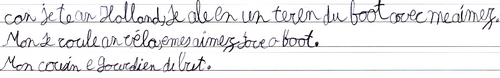 con je te an Holland, je ale en un teren du boot avec me aimez.
Mon je roule an vélo, e mes aimez joue o boot.
Mon cousin e gourdien de but.